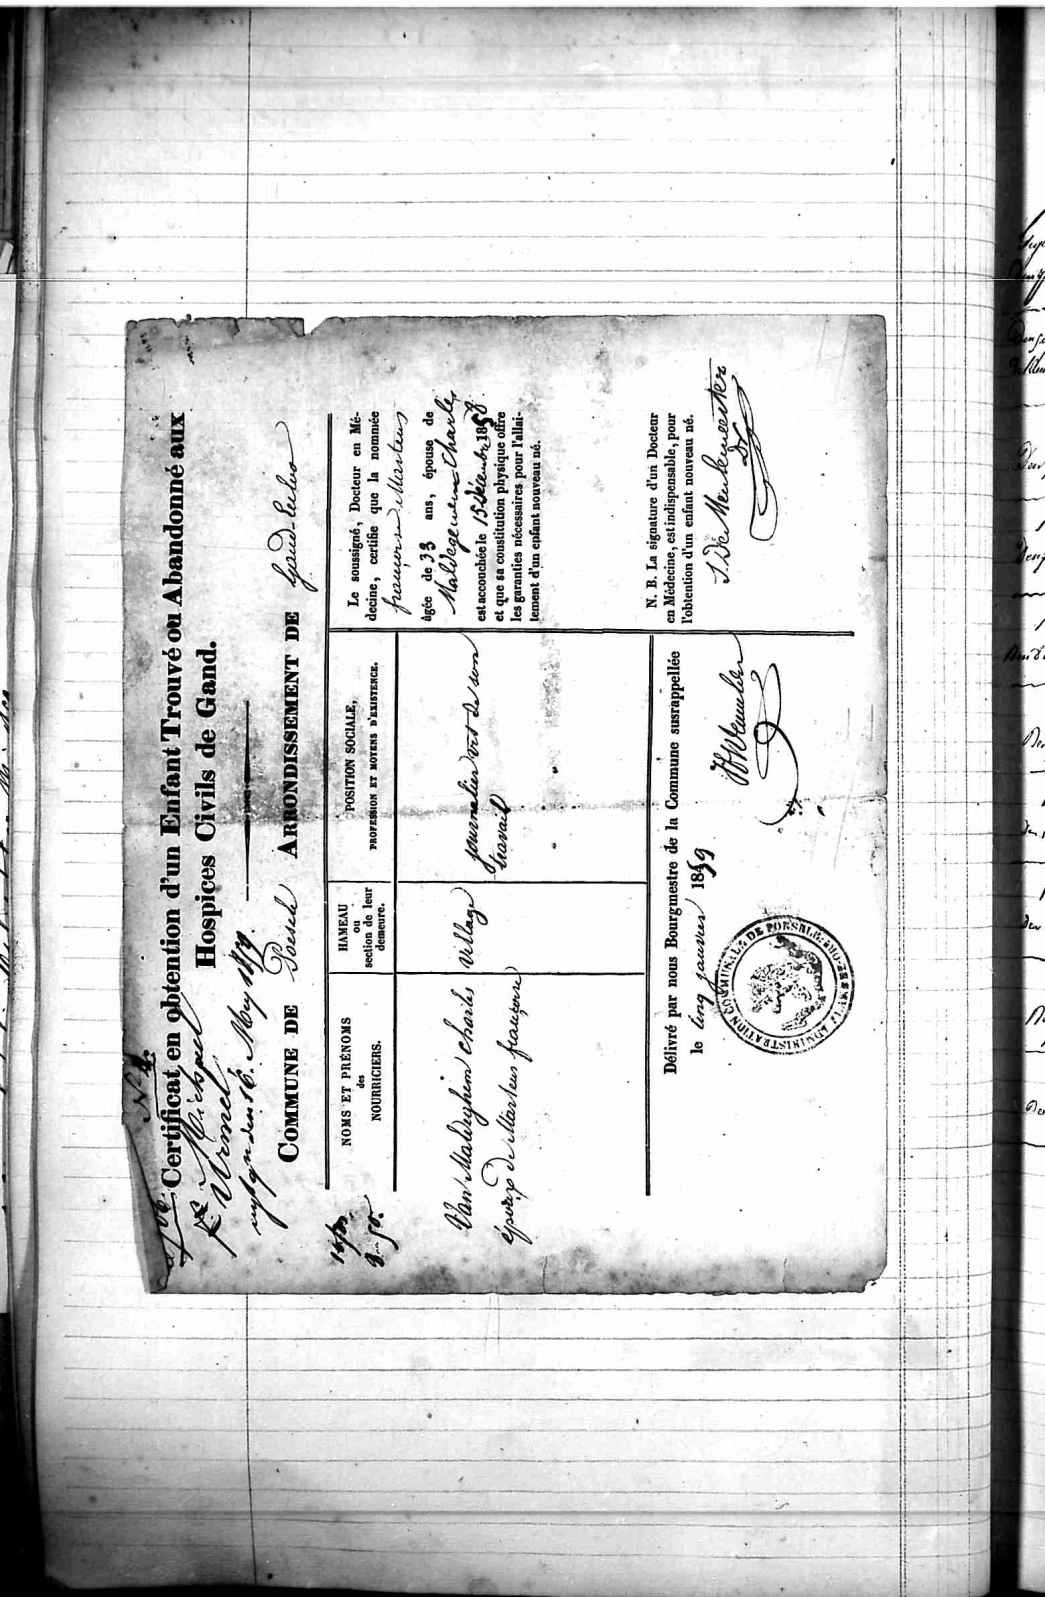 N° 4.
Certificat en obtention d'un Enfant Trouvé ou Abandonné aux
Hospices Civils de Gand.
COMMUNE DE Poesele ARRONDISSEMENT DE Gand-Eecloo
NOMS ET PRÉNOMS
des
NOURRICIERS.
HAMEAU
ou
section de leur
demeure.
POSITION SOCIALE,
PROFESSION ET MOYENS D'EXISTENCE.
Van Maldeghem Charles
épouse de Martens françoise
village
journalier vit de son
travail
Le soussigné, Docteur en Mé-
decine, certifie que la nommée
françoise Martens
âgée de 33 ans, épouse de
Maldegem Charles
est accouchée le 15 Décembre 1858
et que sa constitution physique offre
les garanties nécessaires pour l'allai-
tement d'un enfant nouveau né.
N. B. La signature d'un Docteur
en Médecine, est indispensable, pour
l'obtention d'un enfant nouveau né.
J. De Meulemeester
Dr
Délivré par nous Bourgmestre de la Commune susrappellée
le cinq janvier 1859
ADMINISTRATION COMMUNALE DE POESELE